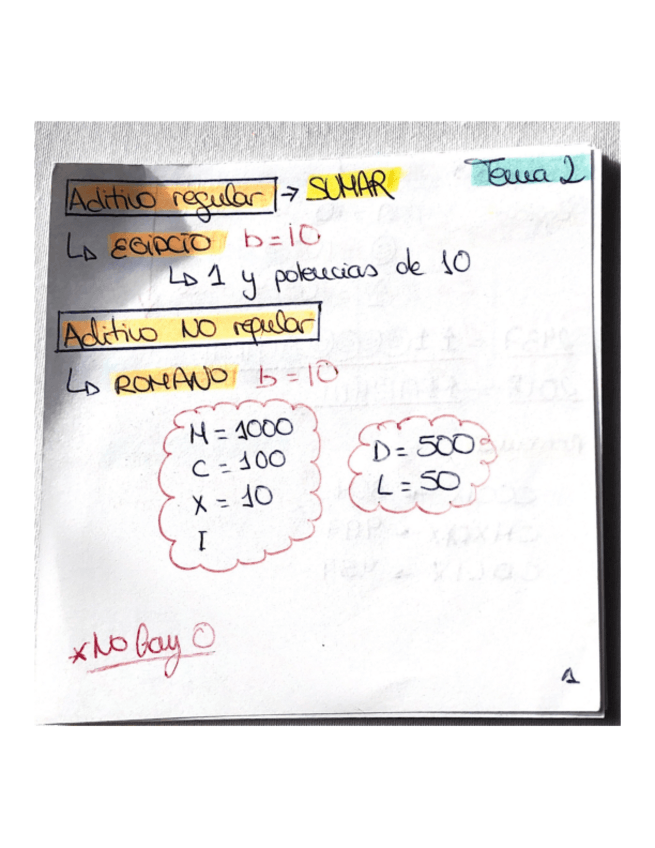 Tema 2
Aditivo regular → SUMAR
↳ EGIPCIO b=10
↳ 1 y potencias de 10
Aditivo NO regular
↳ ROMANO b=10
M = 1000
C = 100
X = 10
I
D = 500
L = 50
* No hay 0
1